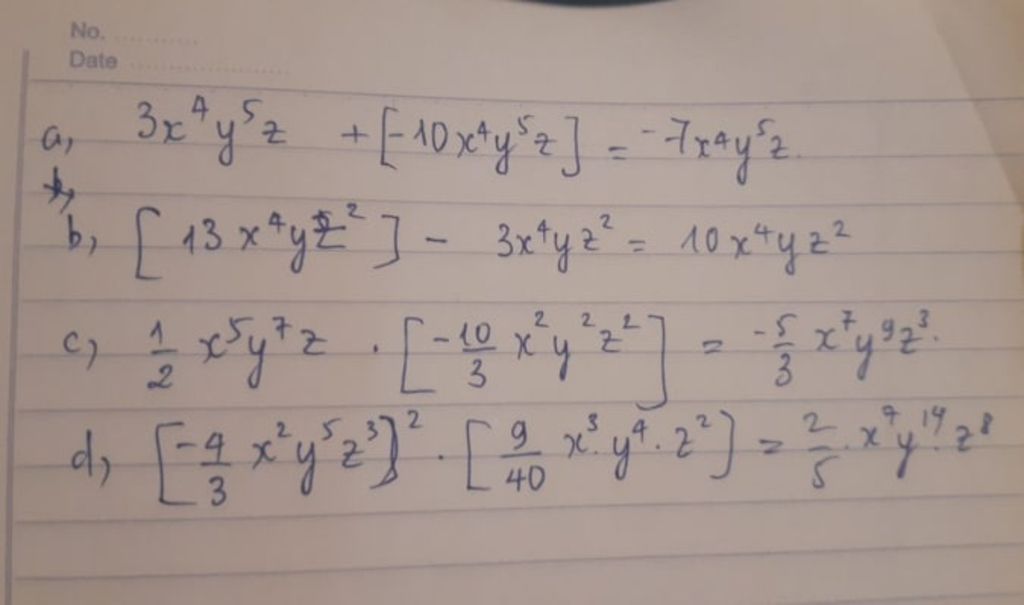 No. ............
Date ......................
a, 3x⁴y⁵z + [-10x⁴y⁵z] = -7x⁴y⁵z.
b, [13x⁴yz²] - 3x⁴yz² = 10x⁴yz²
c, 1/2 x⁵y⁷z . [-10/3 x²y²z²] = -5/3 x⁷y⁹z³.
d, [-4/3 x²y⁵z³]² . [9/40 x³.y⁴.z²] = 2/5 . x⁷y¹⁴.z⁸